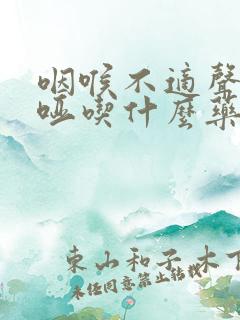 咽喉不適聲
啞喫什麼藥
東山和子木下
未经同意禁止转载